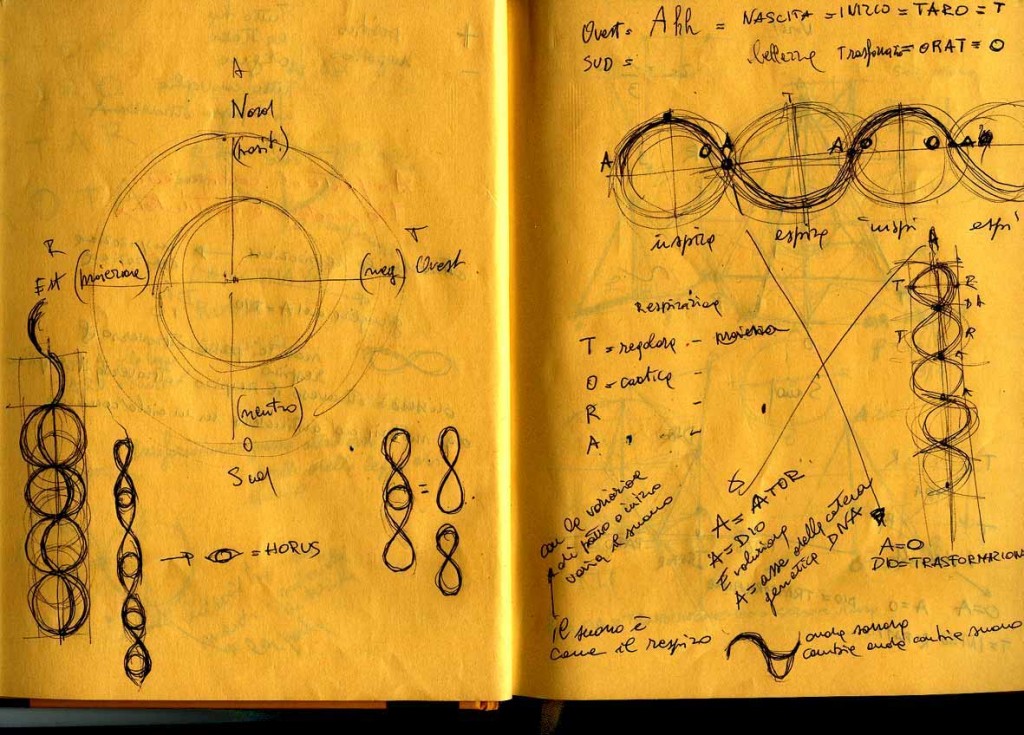 A
Nord
(posit.)
R
Est
T
(neg) Ovest
(neutro)
O
Sud
= HORUS
=
Ovest = Ahh = NASCITA = INIZIO = TARO = T
SUD = bellezza = ORAT = O
T
A O A A O O A
inspira espira inspi espi
A
T R
T R
Respirazione
T = regolare -
O = caotica -
R -
A -
con la variazione
di punto o inizio
varia il suono
A = ATOR
A = DIO
Evoluzione
A = asse della catena
genetica DNA
A=O
DIO=TRASFORMAZION
il suono è
come il respiro
onda sonora
cambia onda cambia suono